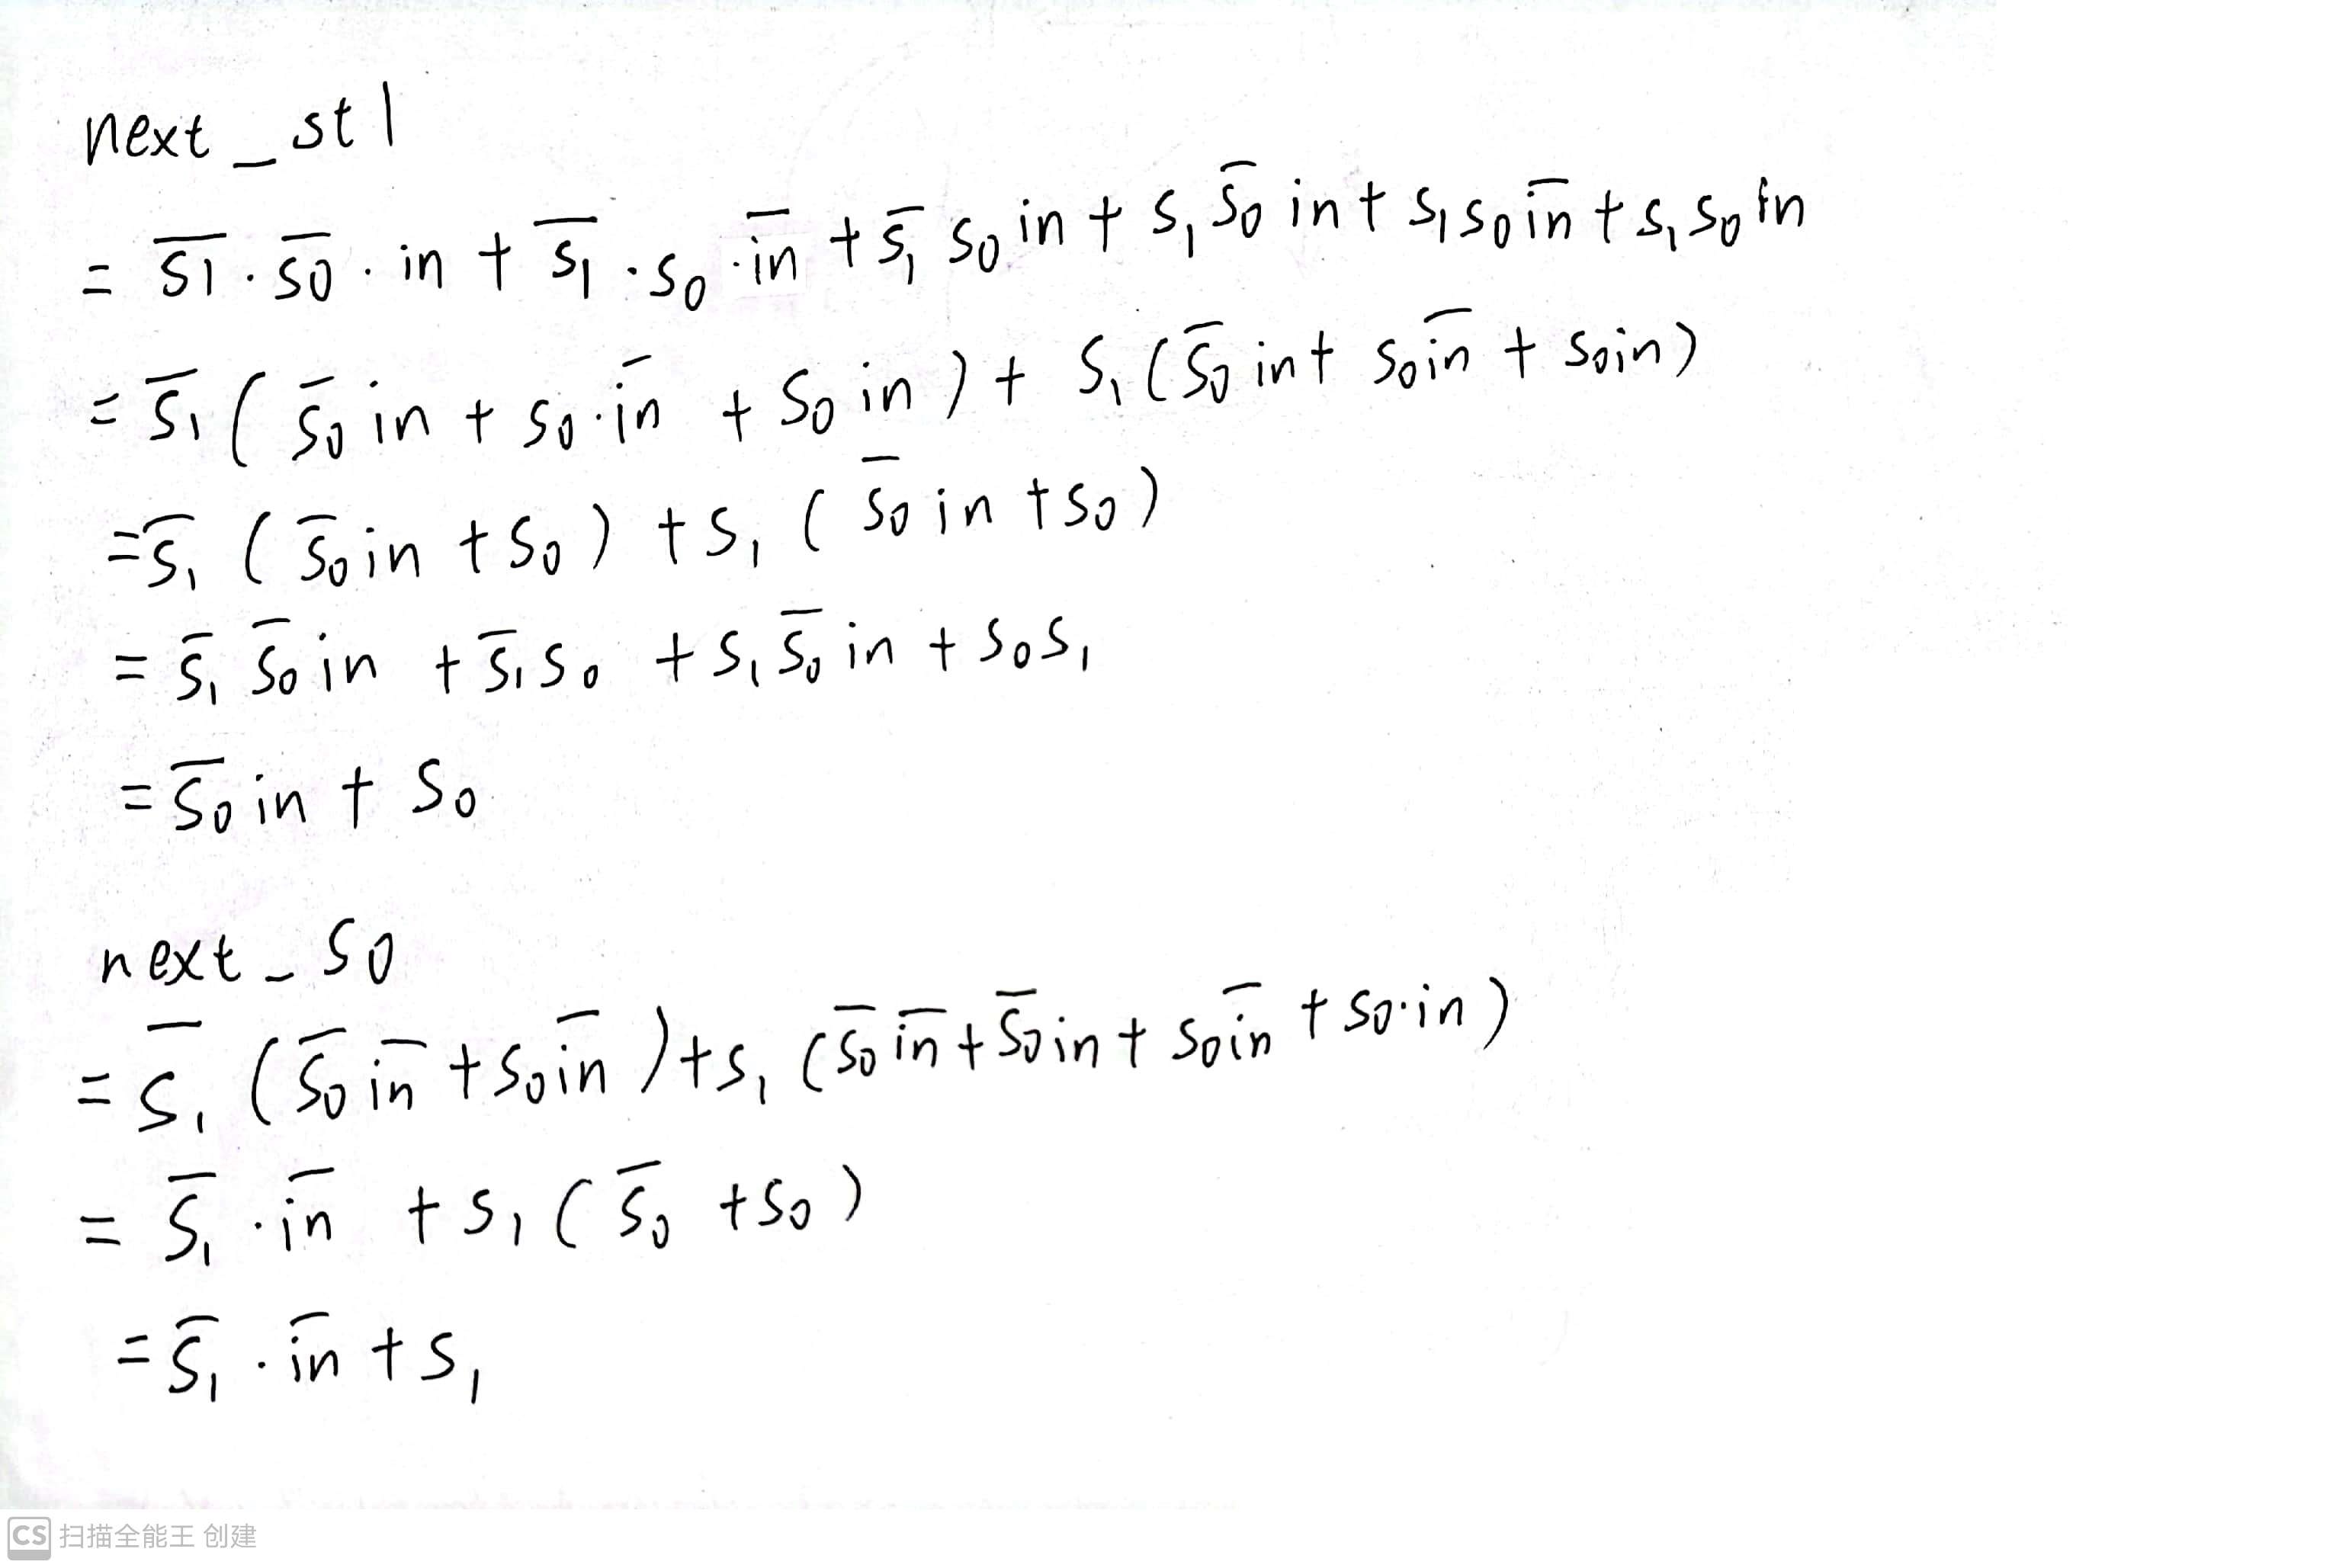 next_st1
= s̅1̅ · s̅0̅ · in + s̅1̅ · s0 · i̅n̅ + s̅1̅ s0 in + s1 s̅0̅ in + s1 s0 i̅n̅ + s1 s0 in
= s̅1̅ ( s̅0̅ in + s0 · i̅n̅ + s0 in ) + s1 ( s̅0̅ in + s0 i̅n̅ + s0 in )
= s̅1̅ ( s̅0̅ in + s0 ) + s1 ( s̅0̅ in + s0 )
= s̅1̅ s̅0̅ in + s̅1̅ s0 + s1 s̅0̅ in + s0 s1
= s̅0̅ in + s0
next_s0
= s̅1̅ ( s̅0̅ i̅n̅ + s0 i̅n̅ ) + s1 ( s̅0̅ i̅n̅ + s̅0̅ in + s0 i̅n̅ + s0 · in )
= s̅1̅ · i̅n̅ + s1 ( s̅0̅ + s0 )
= s̅1̅ · i̅n̅ + s1
CS 扫描全能王 创建